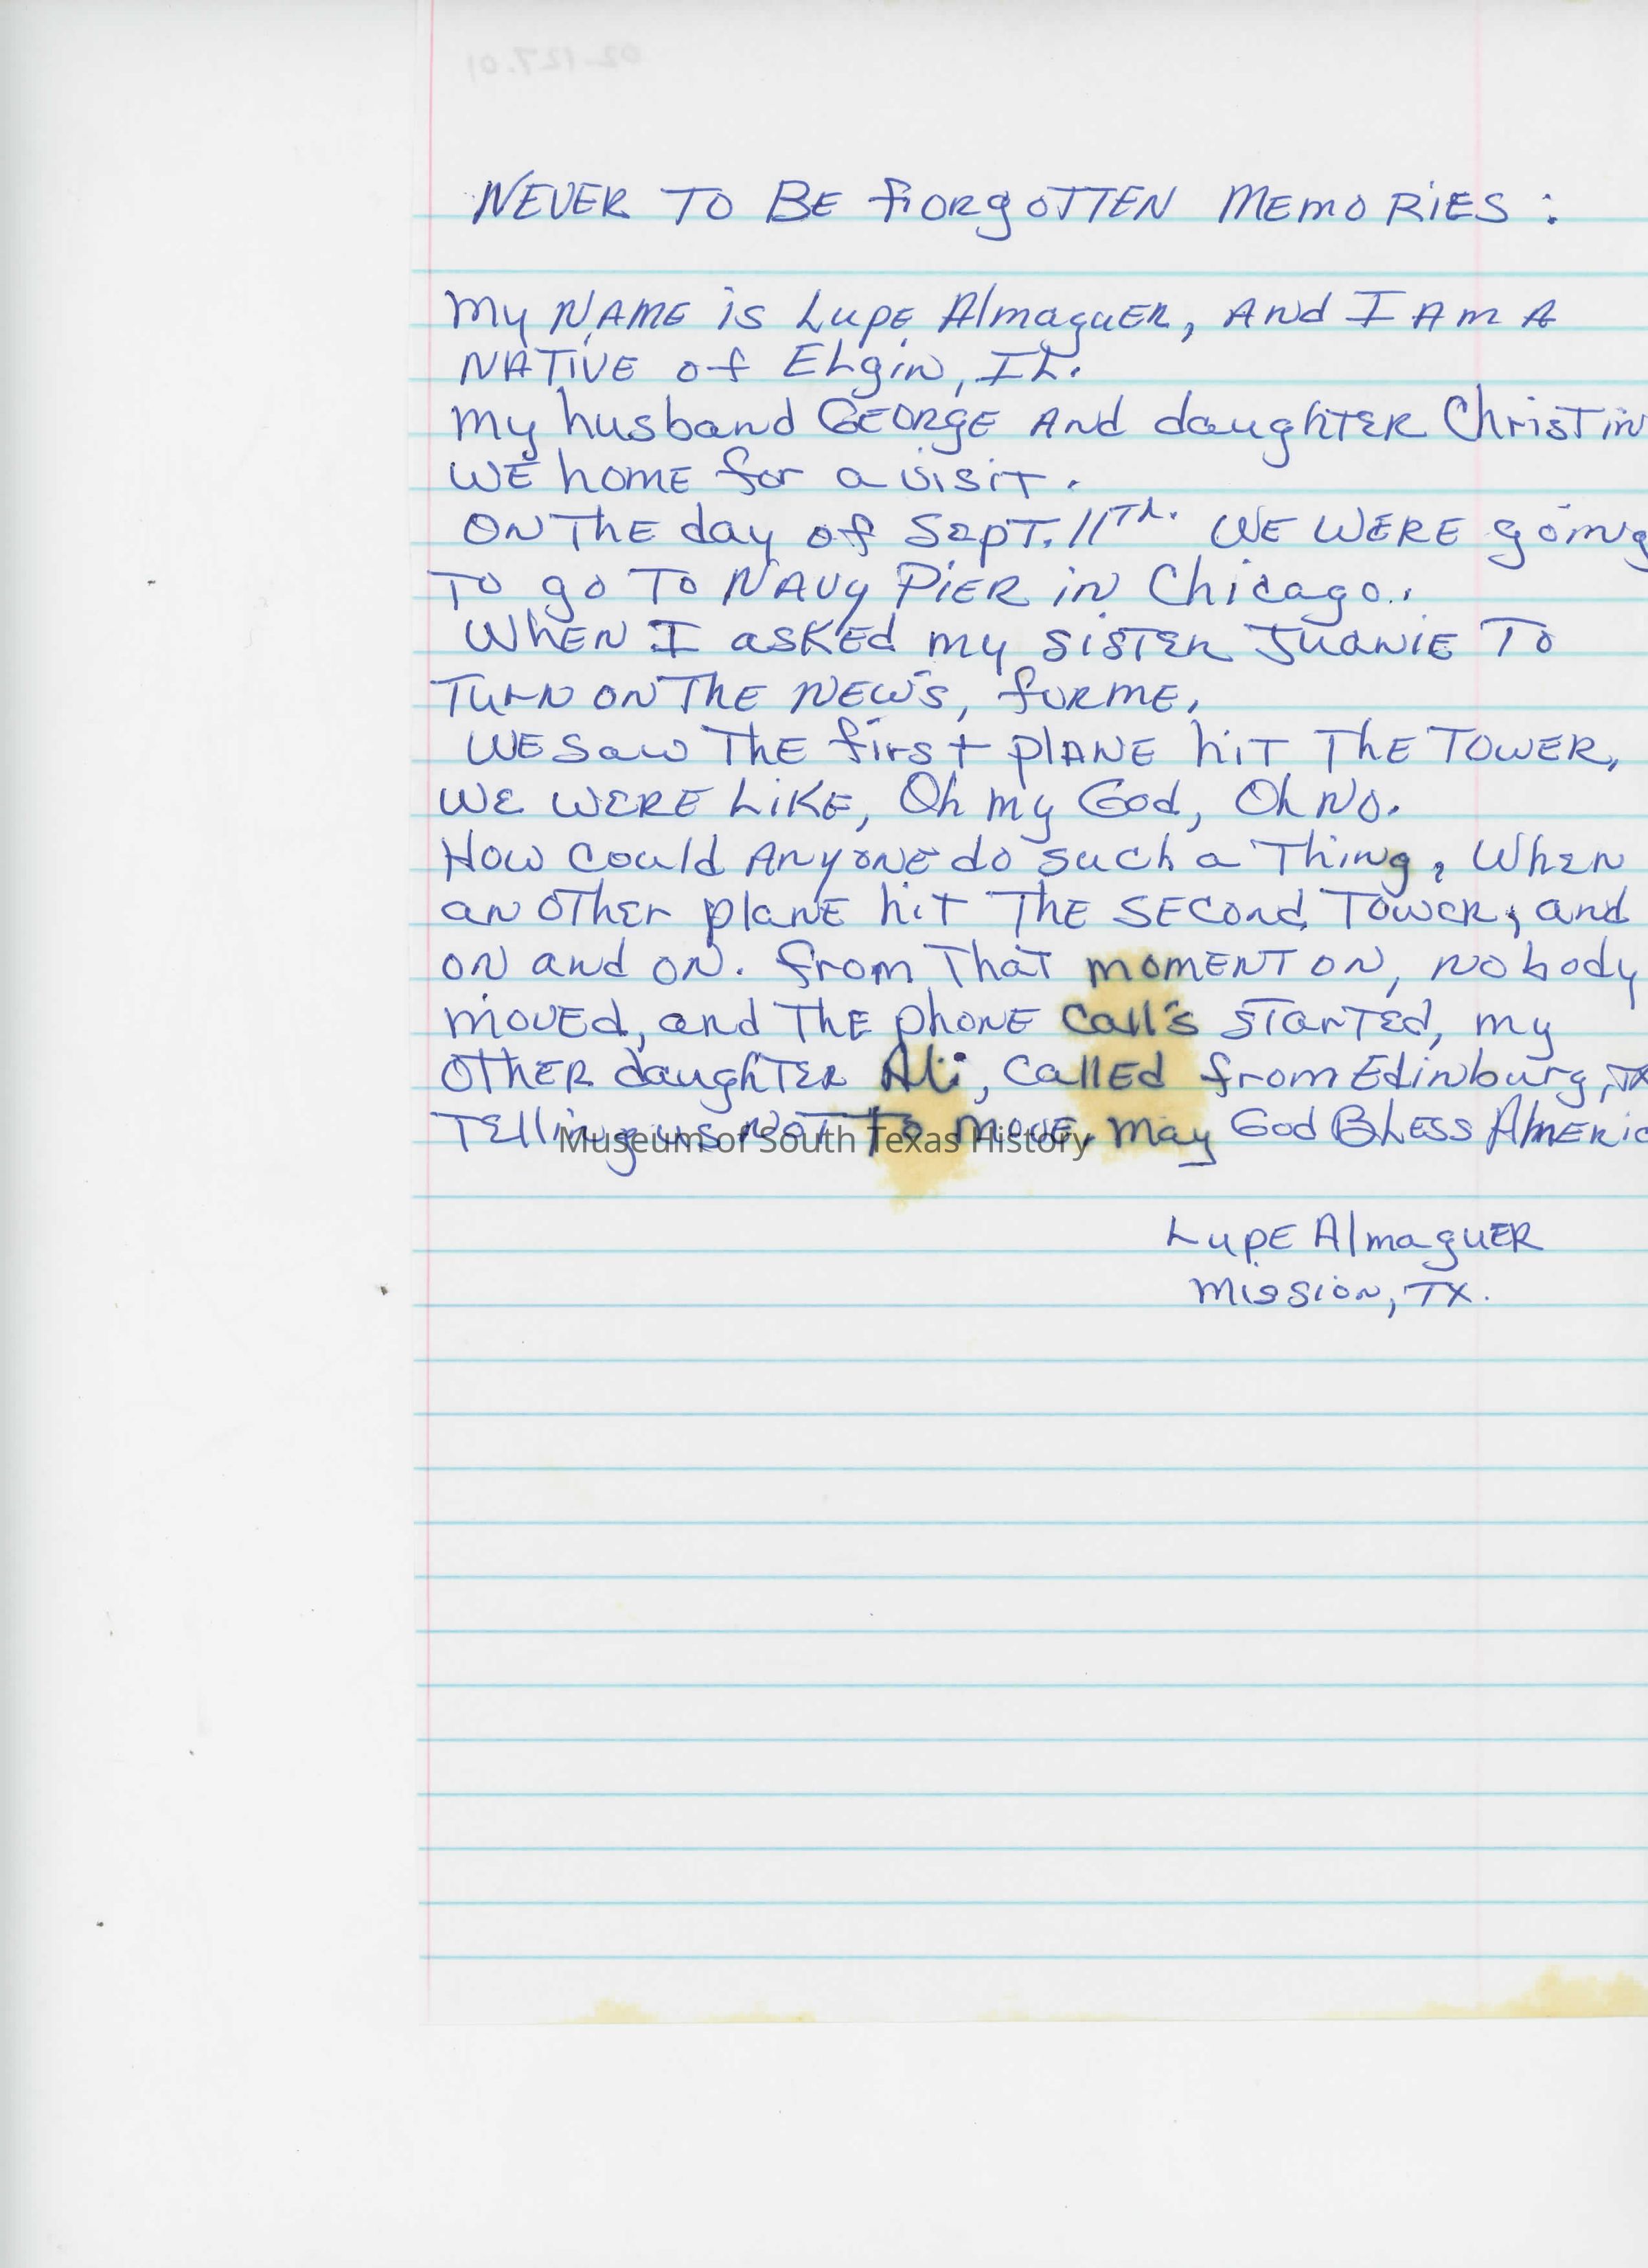 02-127.01
NEVER TO BE fiORgOTTEN MEMORiES :
My NAME is Lupe AlmaguER, And I Am A
NATiVE of ELgin, IL.
My husband GEORGE And daughTER ChrisTin
WE homE for a visiT.
ON ThE day of SepT. 11Th. WE WERE going
To go To NAvy PiER in Chicago..
WhEN I askEd my sisTER JuaniE To
Turn on ThE NEWS, for ME,
WE Saw ThE first plANE hiT ThE TOWER,
WE WERE LiKE, Oh my God, Oh No.
How Could AnyonE do such a Thing, When
an oTher planE hiT ThE SECond TowER, and
on and on. from ThaT momENT on, nobody
movEd, and ThE phonE Call's STarTed, my
oThER daughTER Ali, CallEd from Edinburg, TX
TElling us NoT To movE. May God BLESS AmERic
LupE AlmaguER
Mission, TX.
Museum of South Texas History